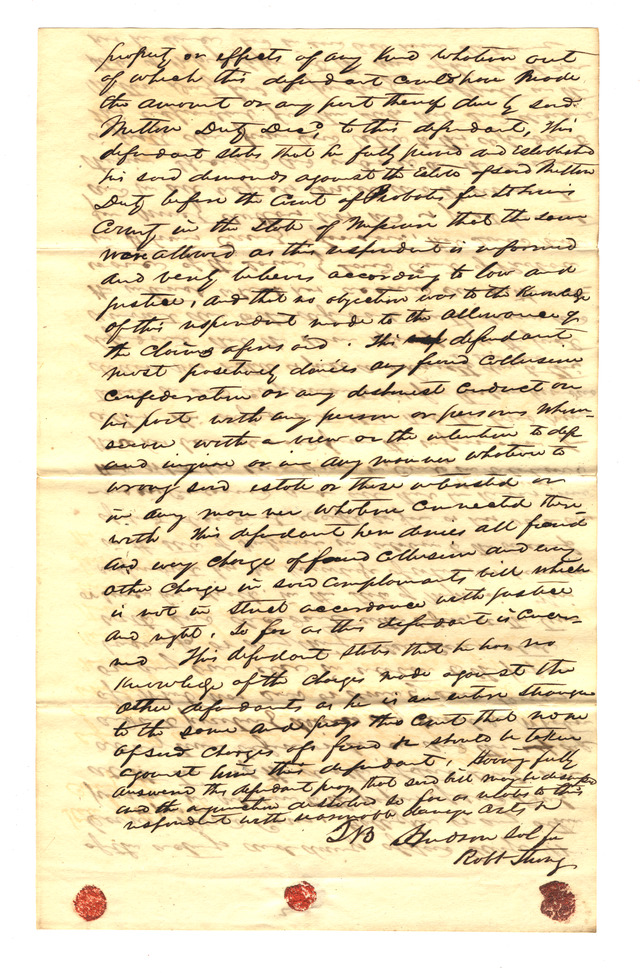 property or effects of any kind whatsoever out
of which this defendant could have made
the amount or any part thereof due by said
Milton Duty Decd, to this defendant, This
defendant states that he fully proved and established
his said demands against the Estate of said Milton
Duty before the Court of Probate for St Louis
County in the State of Missouri that the same
were allowed as this respondent is informed
and verily believes according to law and
justice, and that no objection was to the knowledge
of this respondent made to the allowance of
the claims aforesaid. This defendant
most positively denies any fraud collusion
confederation or any dishonest conduct on
his part with any person or persons whom-
soever with a view or the intention to
and injure or in any manner whatsoever to
wrong said estate or those interested or
in any manner whatsoever connected there
with This defendant here denies all fraud
and every charge of fraud collusion and every
other charge in said complainants bill which
is not in strict accordance with justice
and right, so far as this defendant is concer-
ned This defendant states that he has no
knowledge of the charges made against the
other defendants as he is an entire stranger
to the same and prays the Court that none
of said charges of fraud &c should be taken
against him this defendant, Having fully
answered this defendant prays that said bill may be
and the injunction dissolved so far as relates to this
respondent with reasonable damages costs &c
Hudson Sol for
Robt Strong